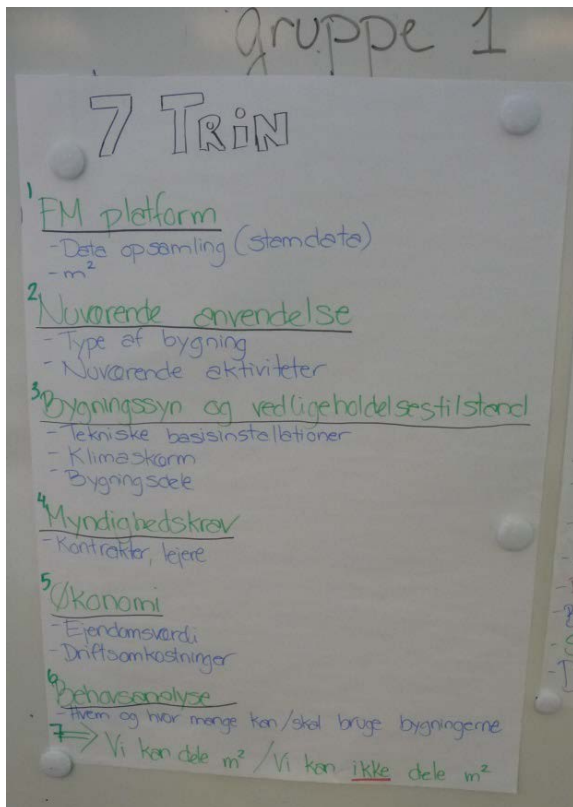 gruppe 1
7 TRIN
1 FM platform
- Data opsamling (stamdata)
- m²
2, Nuværende anvendelse
- Type af bygning
- Nuværende aktiviteter
3, Bygningssyn og vedligeholdelsestilstand
- Tekniske basisinstallationer
- Klimaskærm
- Bygningsdele
4, Myndighedskrav
- Kontrakter, lejere
5 Økonomi
- Ejendomsværdi
- Driftsomkostninger
6 Behovsanalyse
- Hvem og hvor mange kan/skal bruge bygningerne
7 ⇒ Vi kan dele m² / Vi kan ikke dele m²